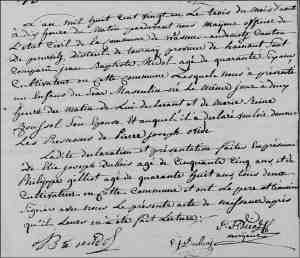 L'an mil huit cent vingt un Le trois du mois d'août
à dix heures du matin pardevant nous Mayeur officier de
L'état Civil de la commune de Wasmes-audemez Canton
de peruwelz, district de tournay province de hainaut sont
Comparu jean Baptiste Nidol agé de quarante
Cultivateur en cette Commune Lesquels nous a présenté
un Enfant du sexe Masculin né le même jour à deux
heures du matin de Lui declarant et de Marie
son Epouse Et auquel il a déclaré vouloir donner
Les Prenoms de Pierre joseph
La dite declaration et présentation faites En présence
de Elie joseph Dubois agé de Cinquante Cinq ans et de
Philippe gilliot agé de quarante huit ans tous deux
Cultivateur en cette Commune et ont Le pere et témoins
signés avec nous Le présent acte de naissance après
qu'il Leur en a été fait Lecture